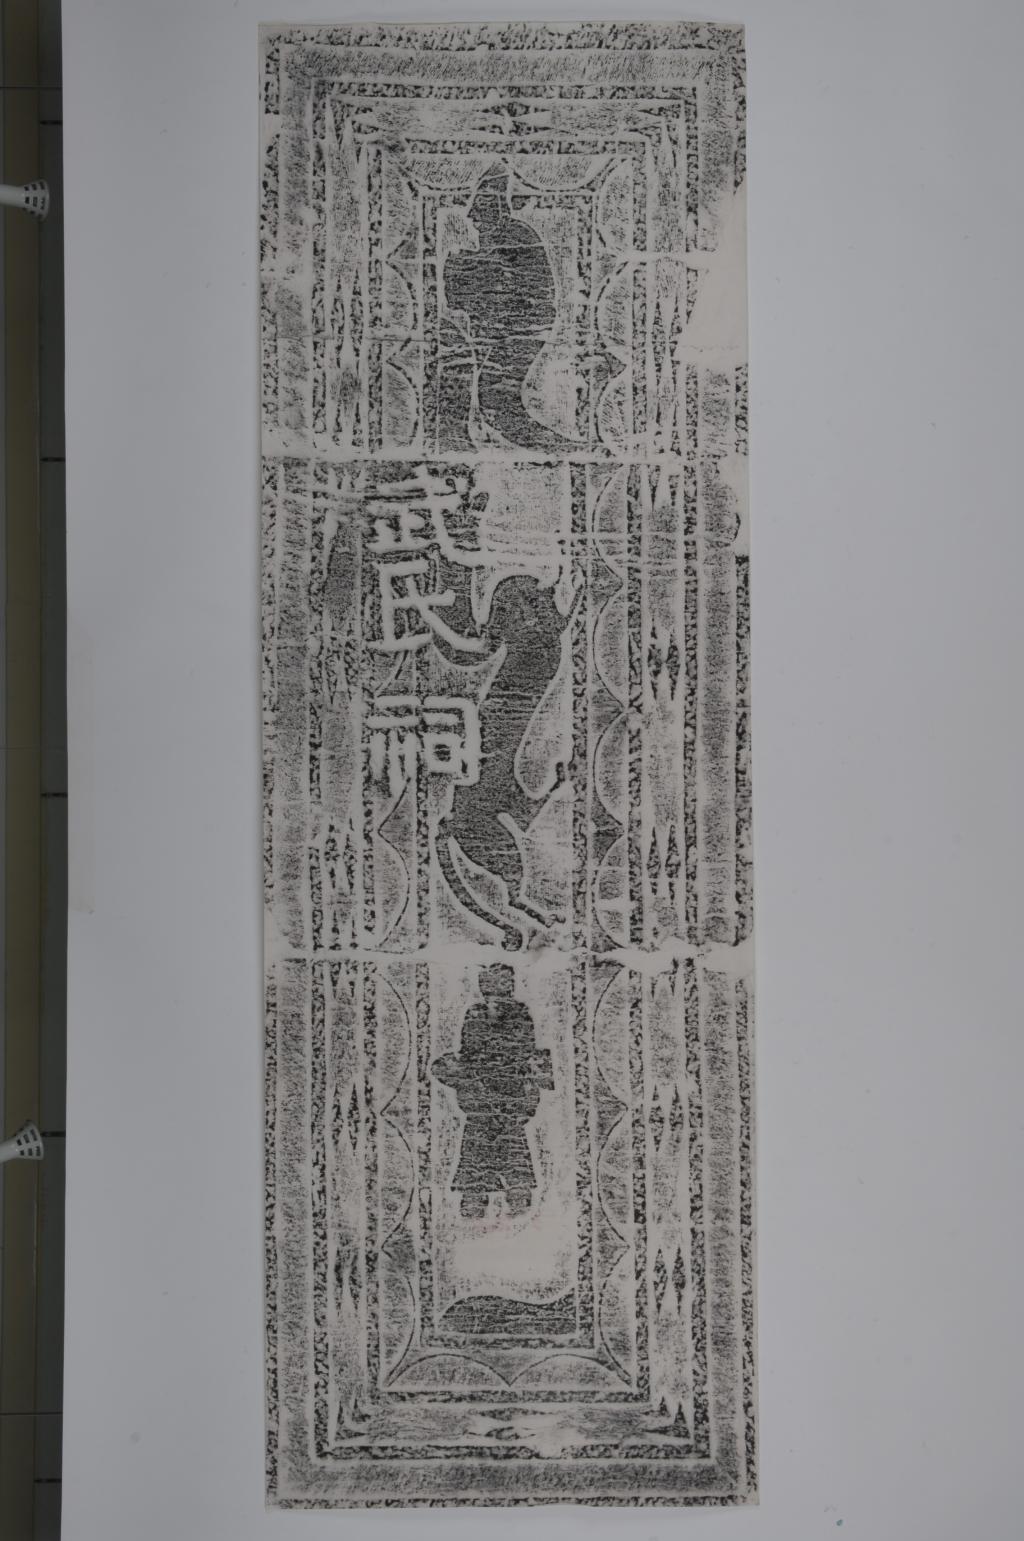 武氏祠